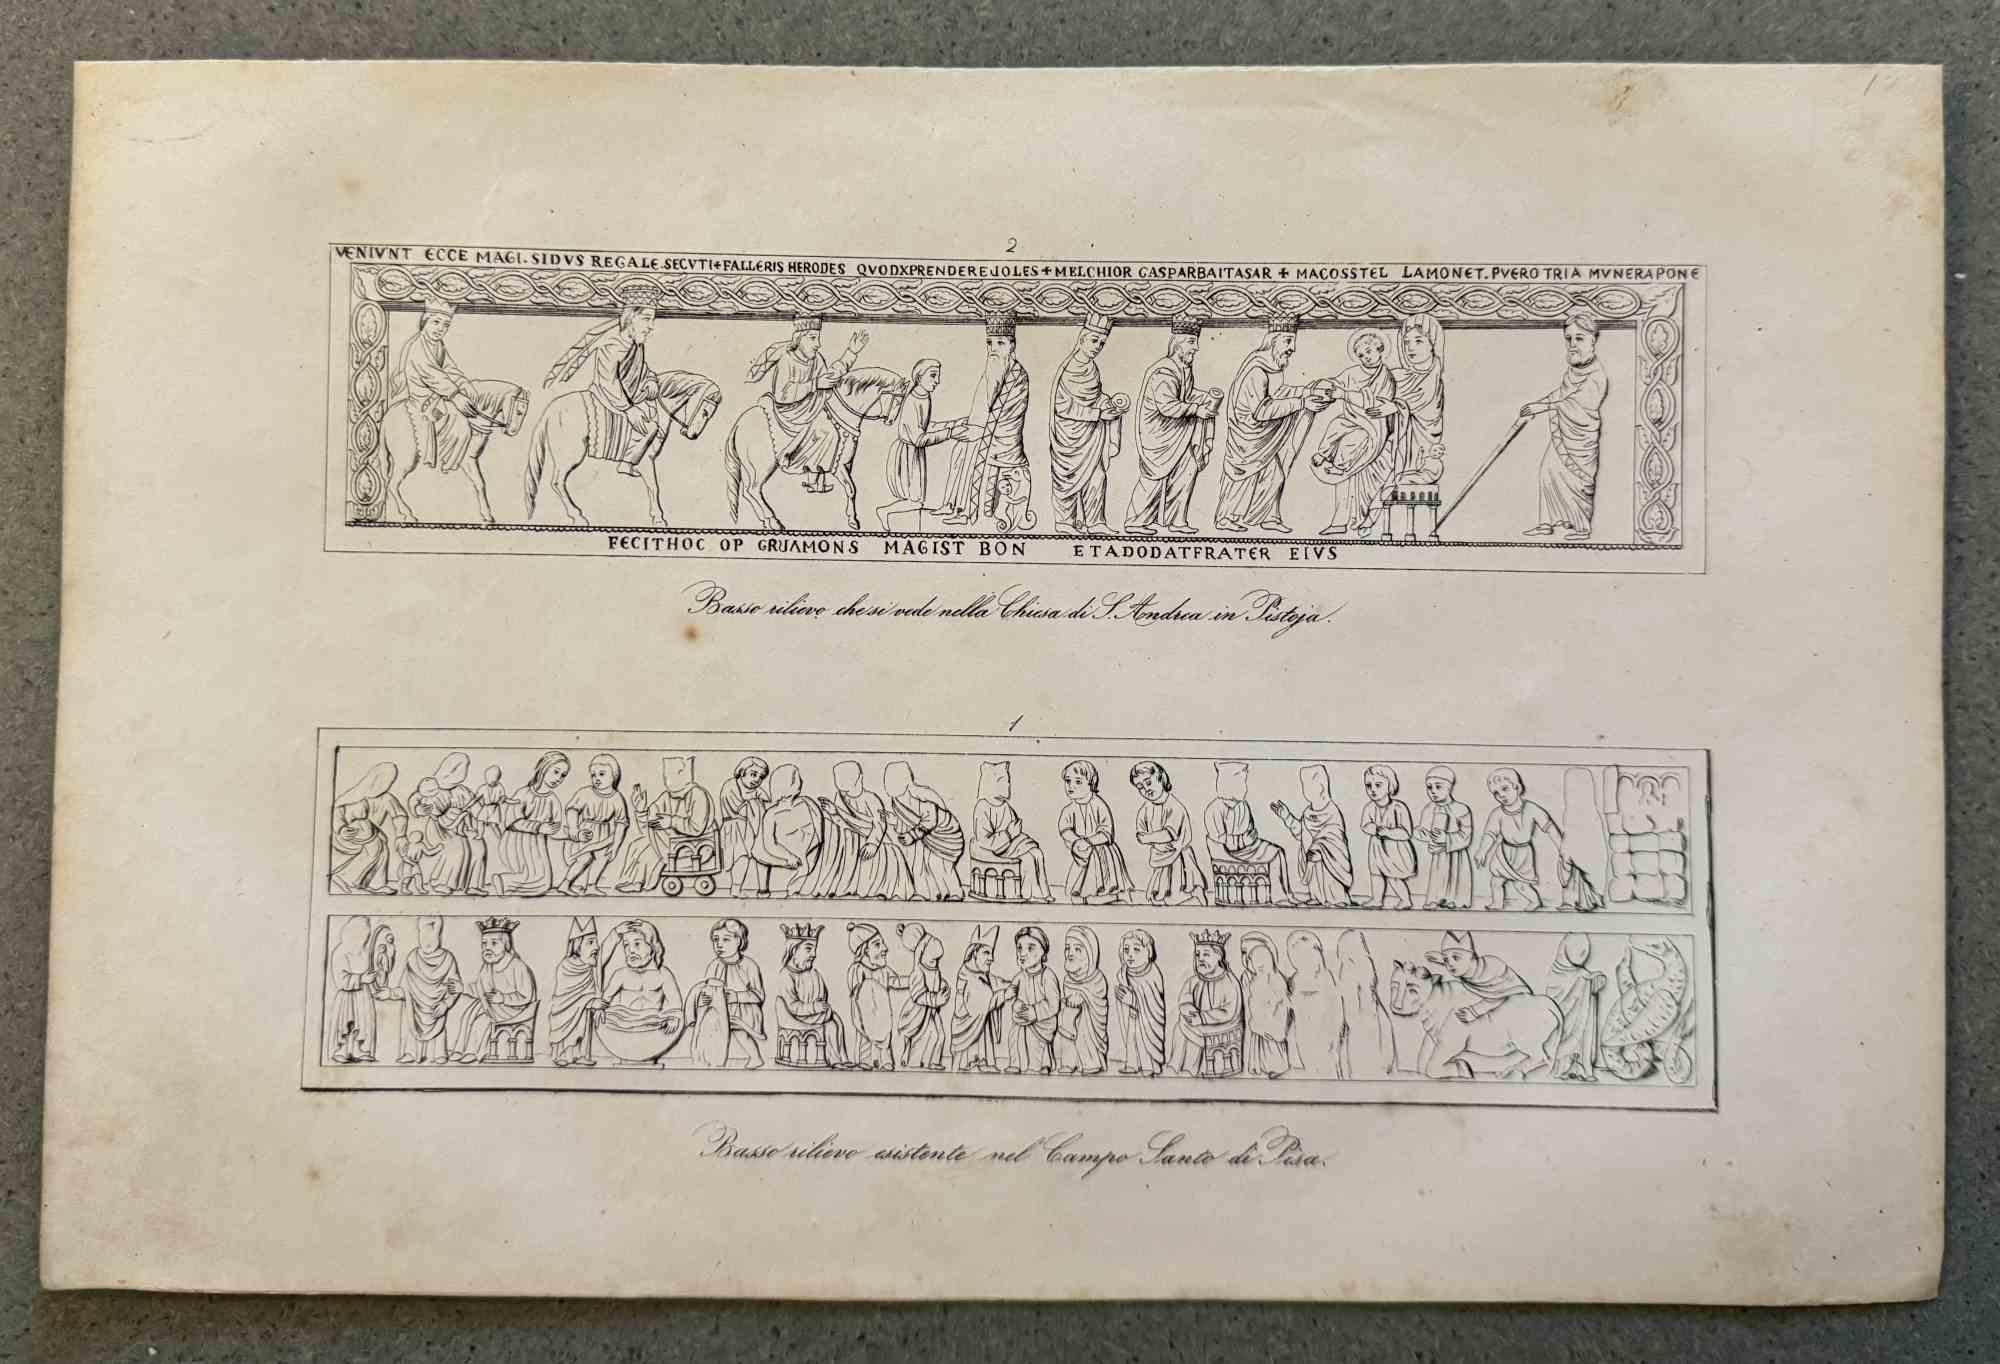 2
VENIVNT ECCE MAGI. SIDVS REGALE SECVTI+FALLERIS HERODES QVODXPRENDEREJOLES+MELCHIOR GASPARBAITASAR + MAGOSSTEL LAMONET. PVERO TRIA MVNERAPONE
FECITHOC OP GRUAMONS MAGIST BON ETADODATFRATER EIVS
Basso rilievo che si vede nella Chiesa di S. Andrea in Pistoja.
1
Basso rilievo esistente nel Campo Santo di Pisa.